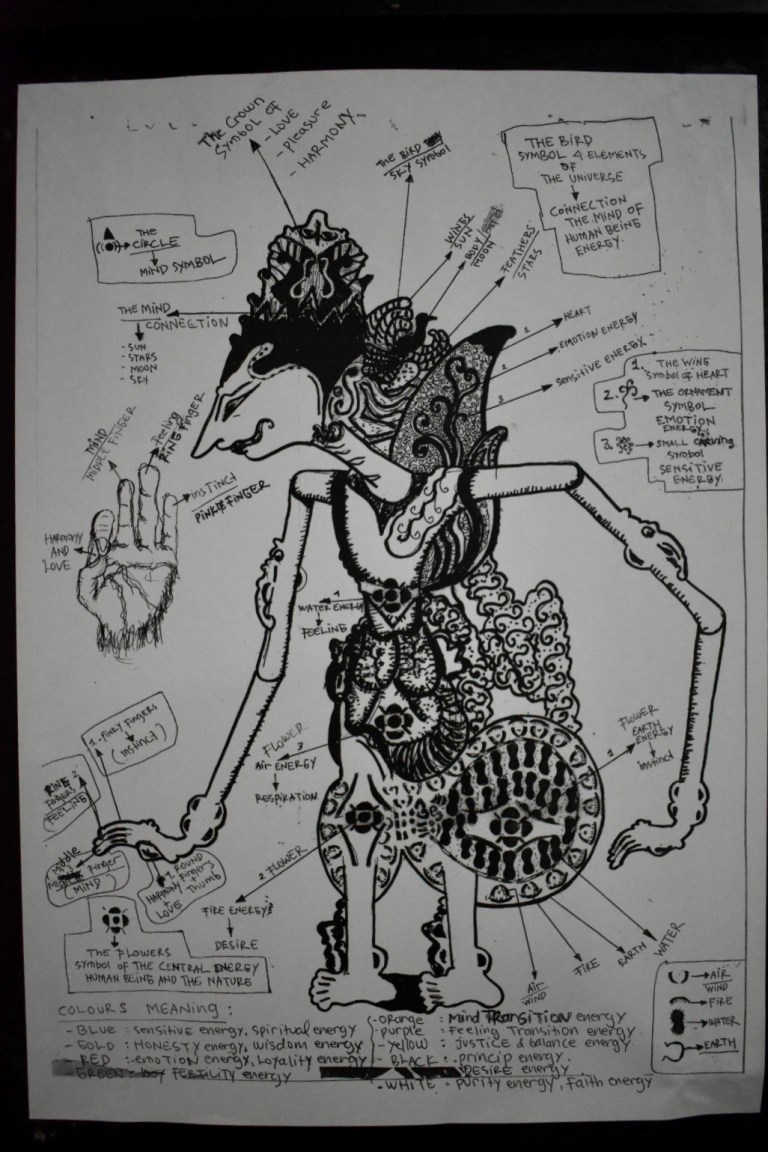 The Crown
Symbol of
- LOVE
- Pleasure
- HARMONY
THE BIRD
SKY SYMBOL
THE BIRD
SYMBOL 4 ELEMENTS
OF
THE UNIVERSE
CONNECTION
THE MIND OF
HUMAN BEING
ENERGY.
THE
CIRCLE
MIND SYMBOL
WINGS
SUN
BODY/
MOON
FEATHERS
STARS
THE MIND
CONNECTION
- SUN
- STARS
- MOON
- SKY
1 HEART
2 EMOTION ENERGY
3 Sensitive ENERGY
1. THE WING
Symbol of HEART
2. THE ORNAMENT
SYMBOL
EMOTION
ENERGY
3. SMALL CARVING
Symbol
SENSITIVE
ENERGY.
MIND
MIDDLE FINGER
Feeling
RING FINGER
instinct
PINKIE FINGER
HARMONY
AND
LOVE
1
WATER ENERGY
FEELING
FLOWER
3
Air ENERGY
RESPIRATION
FLOWER
EARTH
ENERGY
1
instinct
1. Pinky Fingers
(instinct)
RING 2
FINGERS
(FEELING)
Middle
Finger
(MIND)
1. ROUND
Fingers
HARMONY +
+ Thumb
LOVE
2 FLOWER
FIRE ENERGY
DESIRE
THE FLOWERS
Symbol OF THE CENTRAL ENERGY
HUMAN BEING AND THE NATURE
AIR
WIND
FIRE
EARTH
WATER
AIR
WIND
FIRE
WATER
EARTH
COLOURS MEANING :
- BLUE : sensitive energy, spiritual energy
- GOLD : HONESTY energy, wisdom energy
- RED : emotion energy, Loyality energy
- GREEN : FERTILITY energy
- orange : Mind TRANSITION energy
- purple : Feeling Transition energy
- Yellow : justice & balance energy
- BLACK : princip energy.
DESIRE energy
• WHITE : purity energy, Faith energy